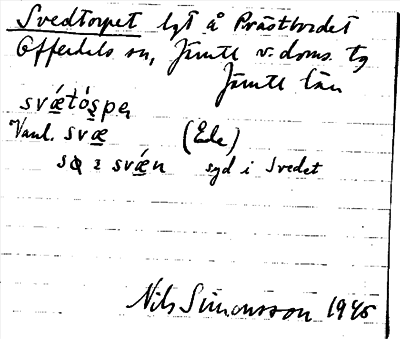 Svedtorpet lgt å Prästbordet
Offerdals sn, Jämtl v. doms. tg
Jämtl län
svǽtóspen
Vanl. svæ (Ede)
sǫ i svǽn syd i Svedet
Nils Simonsson 1945